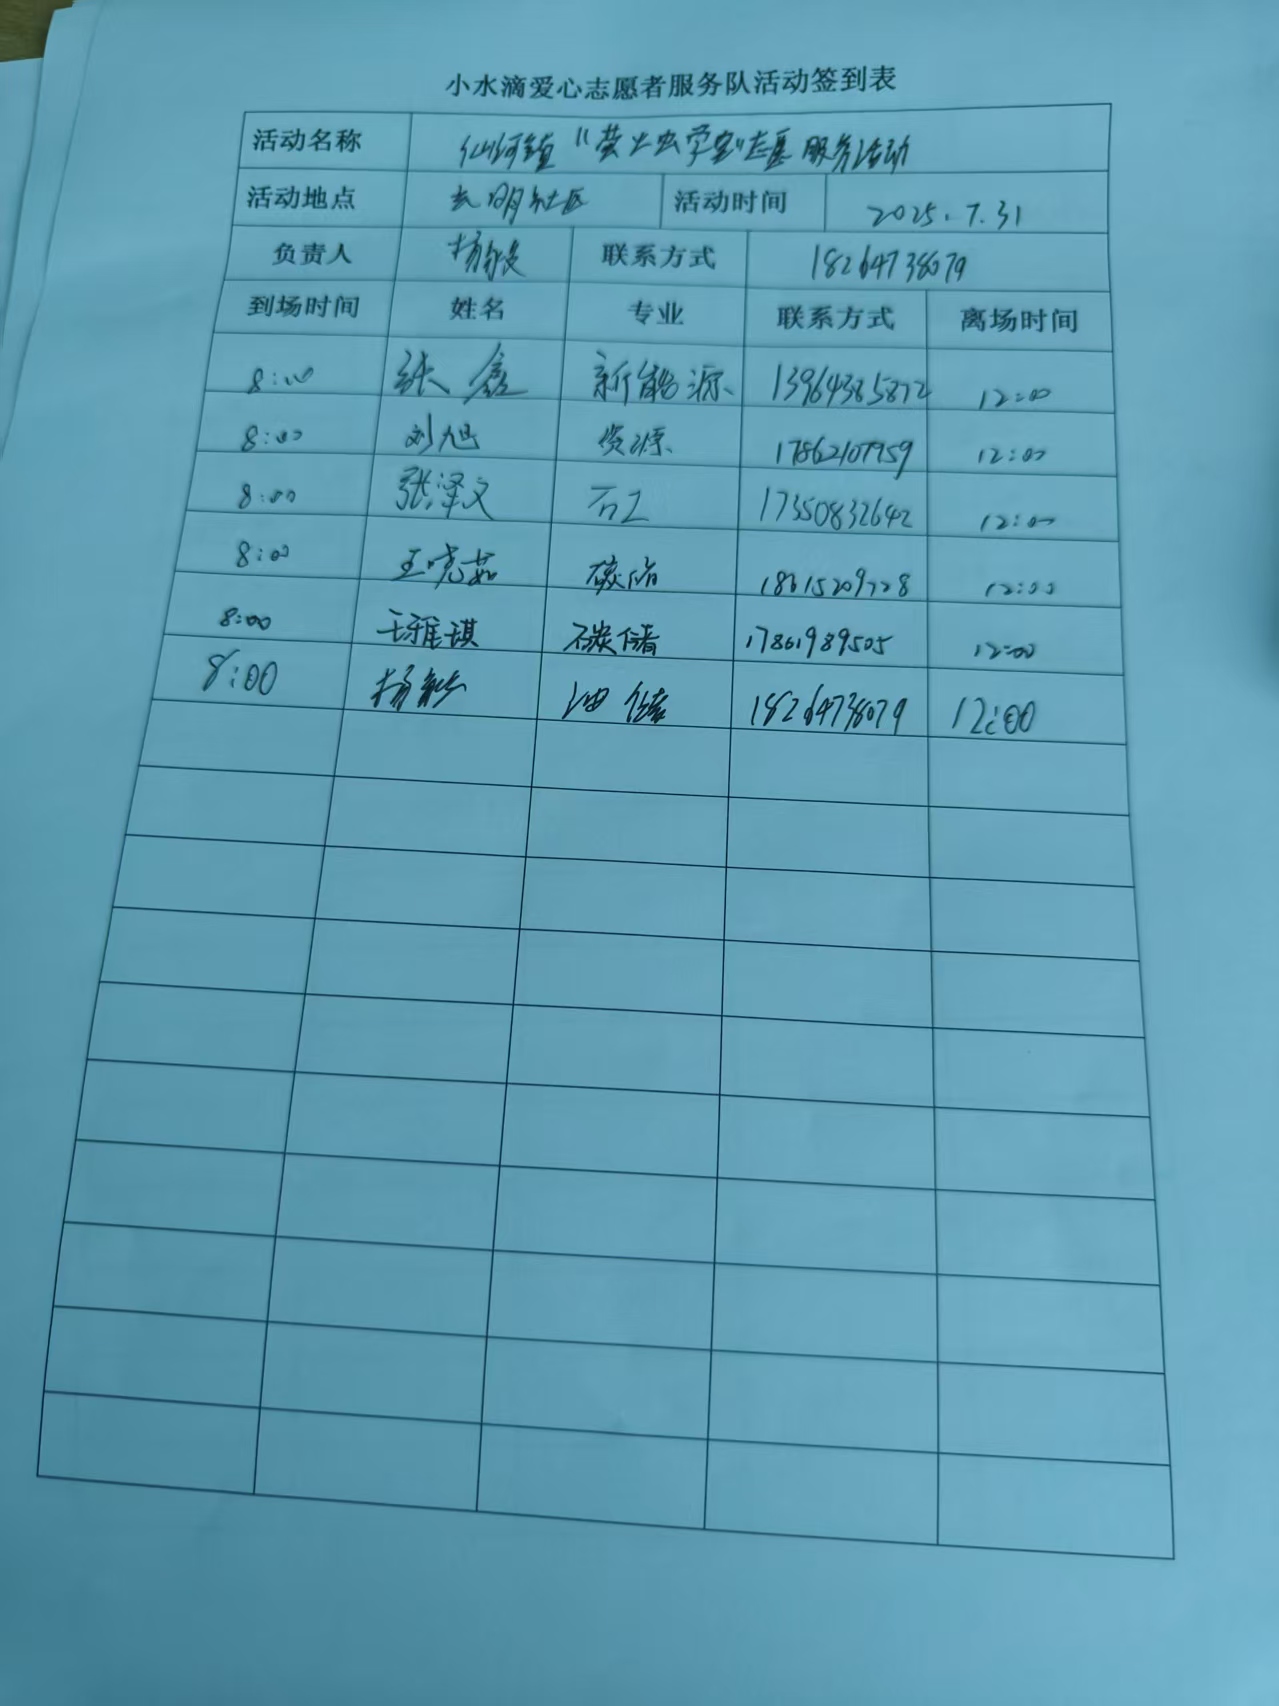 小水滴爱心志愿者服务队活动签到表
活动名称 仙河镇“萤火虫学堂”志愿服务活动
活动地点 社区 活动时间 2025.7.31
负责人 杨 联系方式 18264738079
到场时间 姓名 专业 联系方式 离场时间
8:00 张鑫 新能源 13964385872 12:00
8:00 刘旭 资源 17862107959 12:00
8:00 张泽文 石工 17350832642 12:00
8:00 王晓茹 碳储 18615209728 12:00
8:00 王雅琪 碳储 17861989505 12:00
8:00 杨 油储 18264738079 12:00